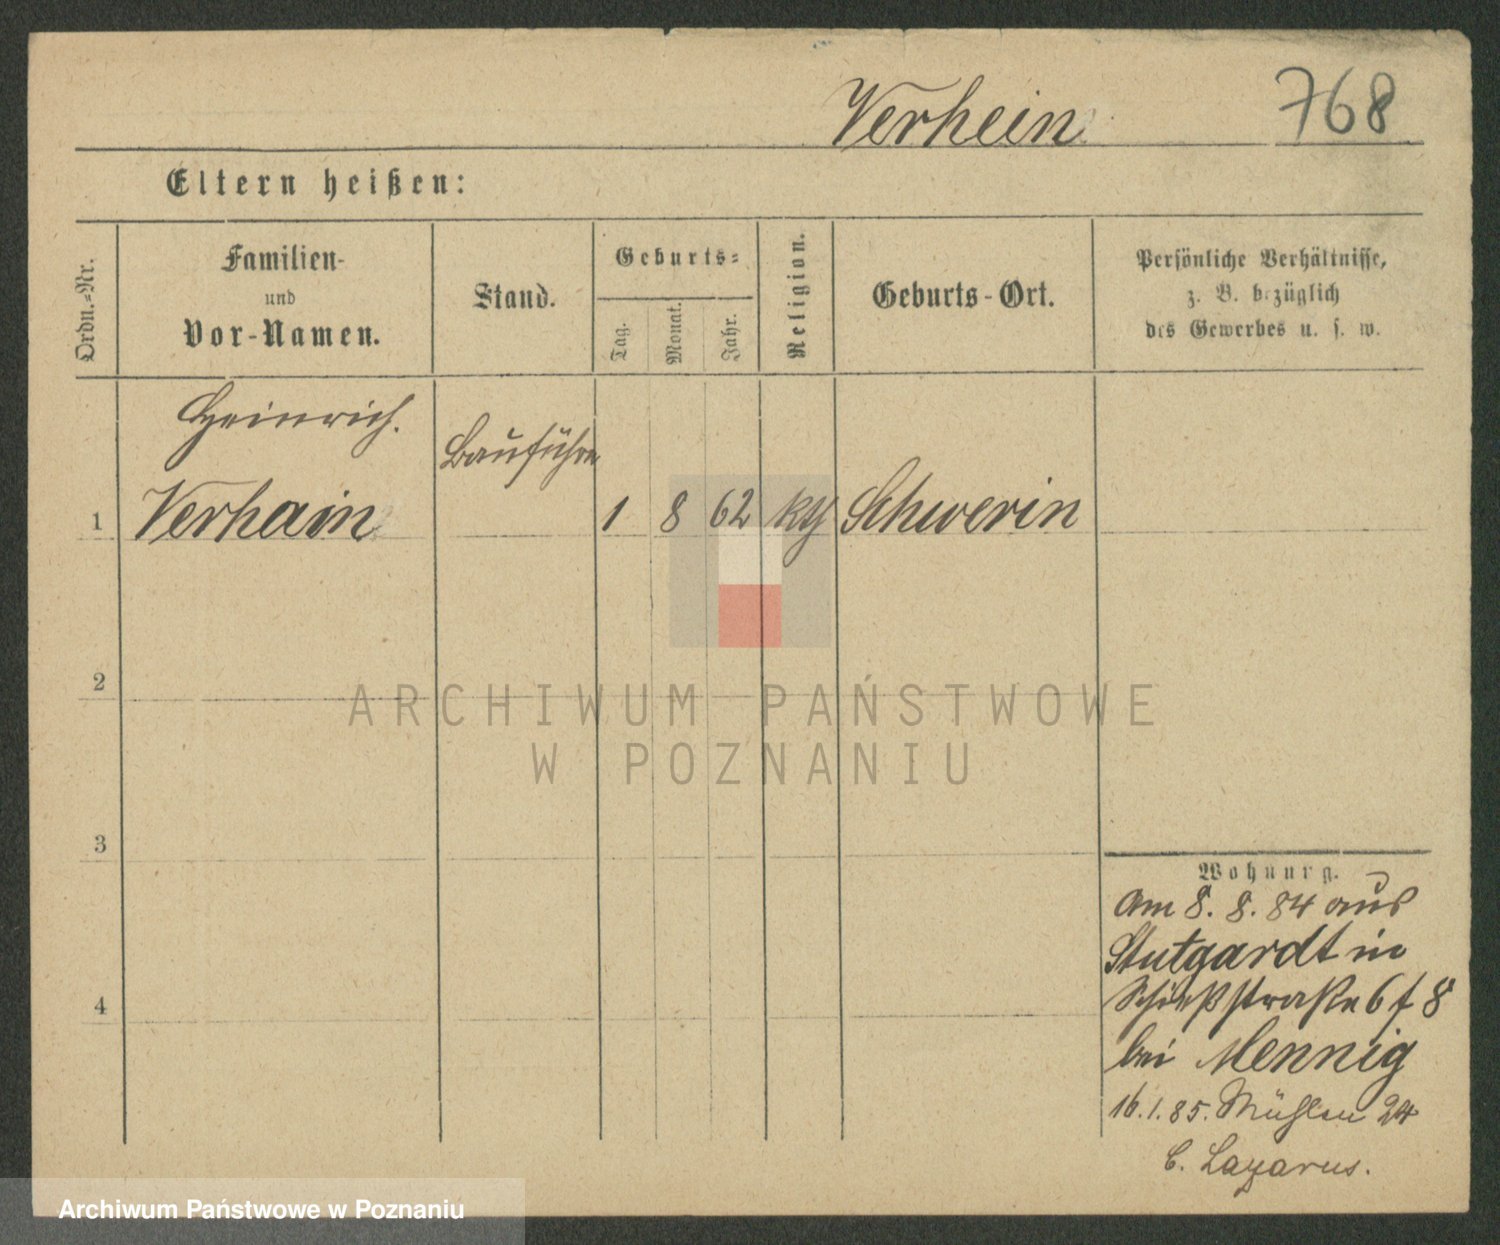 Verhein
768
Eltern heißen:
Ordn.=Nr.
Familien-
und
Vor-Namen.
Stand.
Geburts=
Tag.
Monat.
Jahr.
Religion.
Geburts-Ort.
Persönliche Verhältnisse,
z. B. bezüglich
des Gewerbes u. s. w.
Heinrich.
Bauführer
1 Verhain 1 8 62 Schwerin
2
3
4
Wohnung.
Am 8. 8. 84 aus
Stutgardt in
Schießstraße 6 f 8
bei Mennig
16.1.85. Mühlen 24
b. Lazarus.
ARCHIWUM PAŃSTWOWE
W POZNANIU
Archiwum Państwowe w Poznaniu